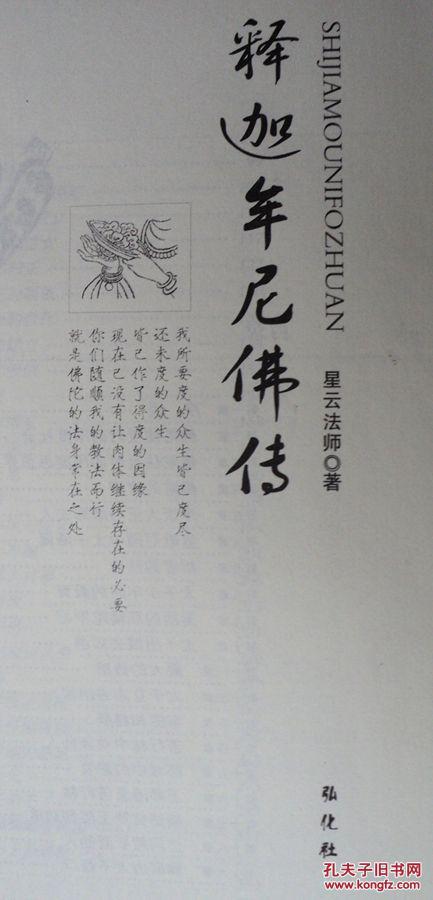 SHIJIAMOUNIFOZHUAN
释迦牟尼佛传
星云法师◎著
我所要度的众生皆已度尽
还未度的众生
皆已作了得度的因缘
现在已没有让肉体继续存在的必要
你们随顺我的教法而行
就是佛陀的法身常在之处
弘化社
孔夫子旧书网
www.kongfz.com